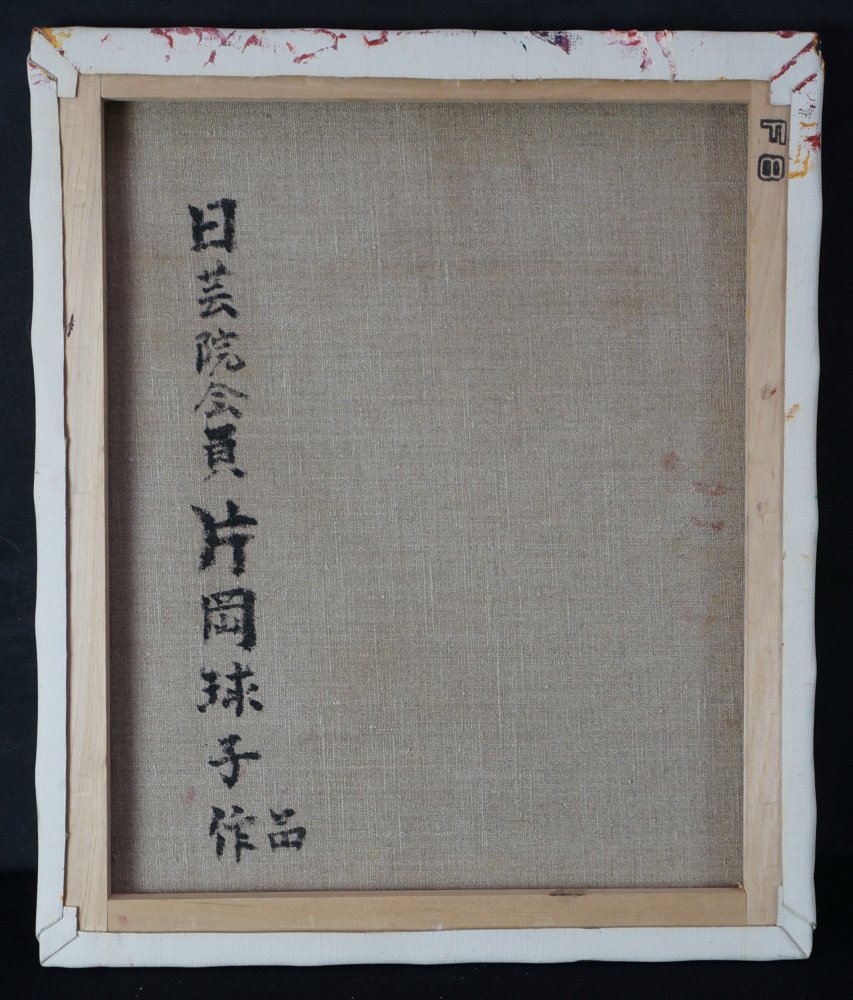 F8
日芸院会員 片岡球子 作品